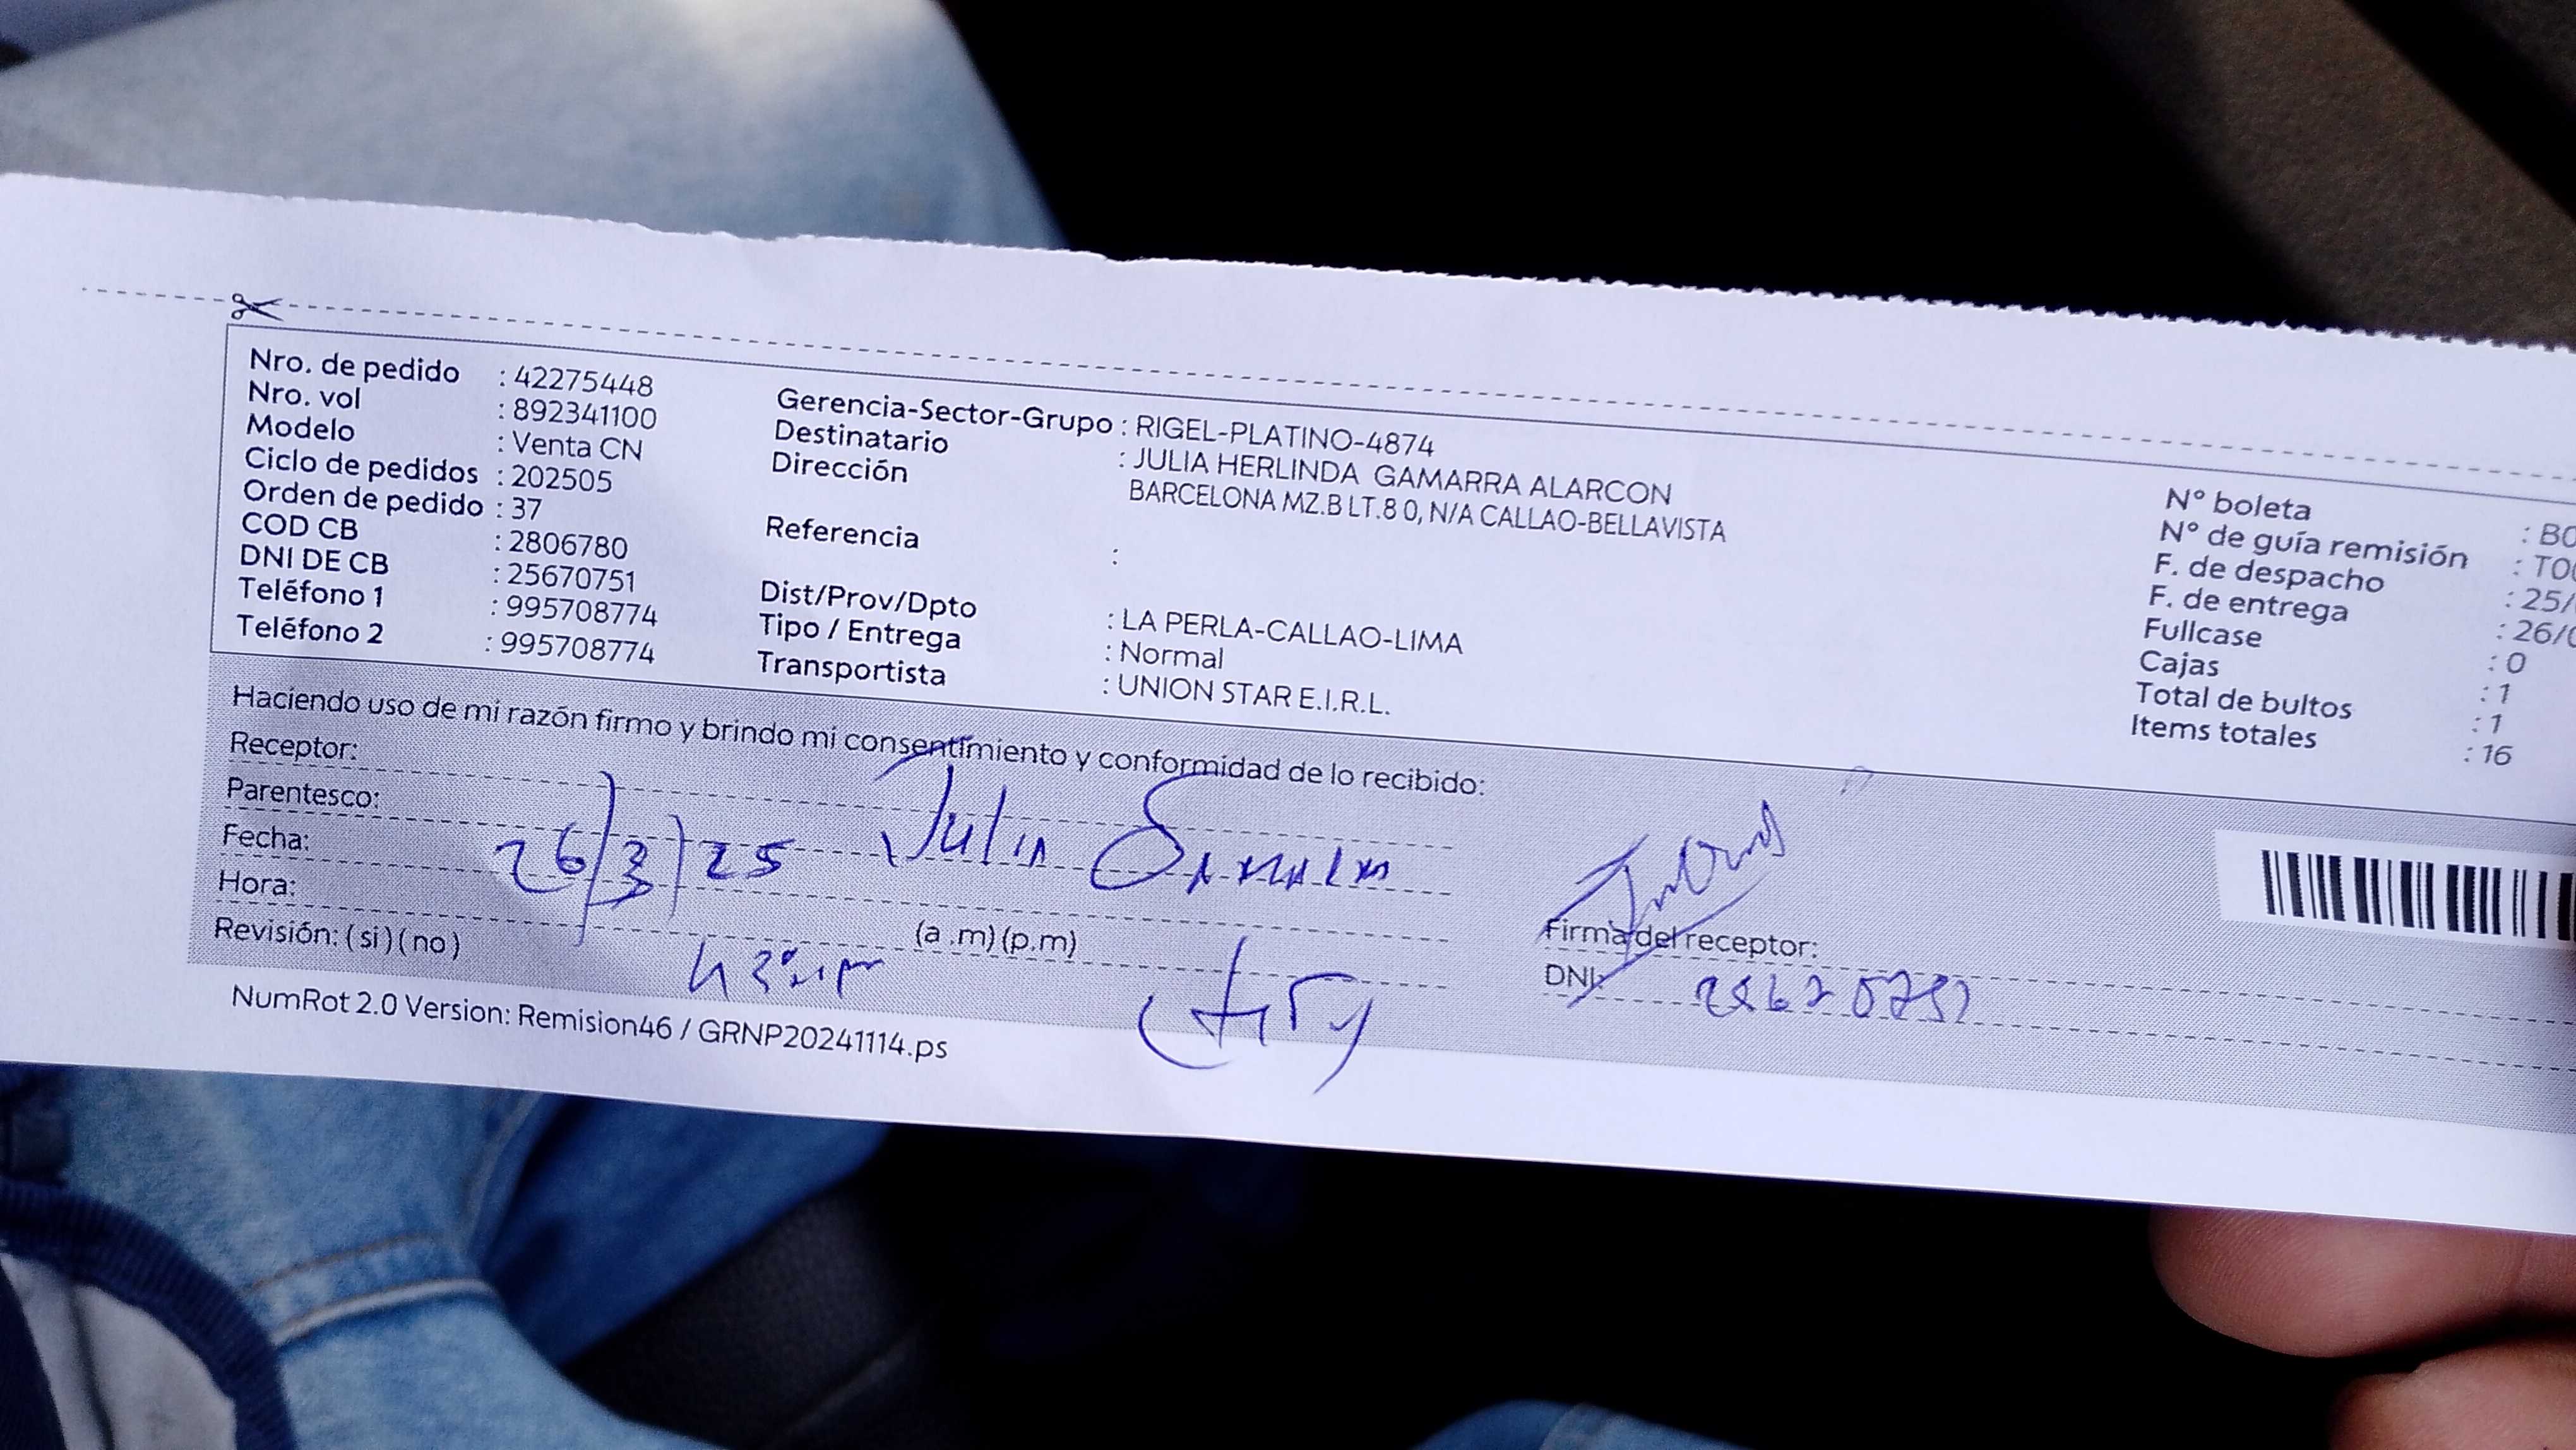 Nro. de pedido : 42275448
Nro. vol : 892341100
Modelo : Venta CN
Ciclo de pedidos : 202505
Orden de pedido : 37
COD CB : 2806780
DNI DE CB : 25670751
Teléfono 1 : 995708774
Teléfono 2 : 995708774
Gerencia-Sector-Grupo : RIGEL-PLATINO-4874
Destinatario : JULIA HERLINDA GAMARRA ALARCON
Dirección BARCELONA MZ.B LT.8 0, N/A CALLAO-BELLAVISTA
Referencia :
Dist/Prov/Dpto : LA PERLA-CALLAO-LIMA
Tipo / Entrega : Normal
Transportista : UNION STAR E.I.R.L.
N° boleta : B0
N° de guía remisión : T00
F. de despacho : 25/
F. de entrega : 26/0
Fullcase : 0
Cajas : 1
Total de bultos : 1
Items totales : 16
Haciendo uso de mi razón firmo y brindo mi consentimiento y conformidad de lo recibido:
Receptor:
Parentesco:
Fecha: 26/3/25 Julia
Hora: (a .m) (p.m)
Revisión: ( si ) ( no )
Firma del receptor:
DNI:
NumRot 2.0 Version: Remision46 / GRNP20241114.ps